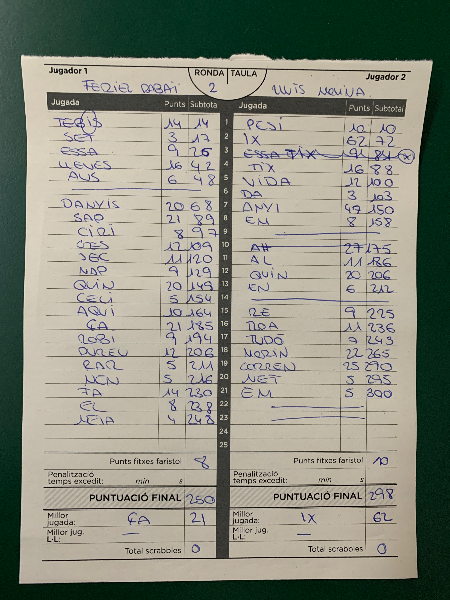 Jugador 1 RONDA TAULA Jugador 2
FERIEL DABAI 2 LLUÍS MOLINA
Jugada Punts Subtotal Jugada Punts Subtotal
14 14 1 10 10
SET 3 17 2 IX 62 72
ESSA 9 26 3 ESSA TIX 91 84
LLEVES 16 42 4 TIX 16 88
AUS 6 48 5 VIDA 12 100
6 DA 3 103
DANYIS 20 68 7 ANYI 47 150
SAO 21 89 8 EM 8 158
CIRI 8 97 9
12 109 10 AH 27 175
SEC 11 120 11 AL 11 186
NAP 9 129 12 QUIN 20 206
QUIN 20 149 13 EN 6 212
CELI 5 154 14
AQUÍ 10 164 15 RE 9 225
ÇA 21 185 16 11 236
ROBI 9 194 17 TUDÓ 9 245
DUREU 12 206 18 22 265
BAR 5 211 19 CORREN 25 290
5 216 20 NET 5 295
FA 14 230 21 EM 5 300
EL 8 238 22
NEIA 4 248 23
24
25
Punts fitxes faristol 8 Punts fitxes faristol 10
Penalització temps excedit: min s Penalització temps excedit: min s
PUNTUACIÓ FINAL 250 PUNTUACIÓ FINAL 298
Millor jugada: ÇA 21 Millor jugada: IX 62
Millor jug. L·L: — Millor jug. L·L: —
Total scrabbles 0 Total scrabbles 0